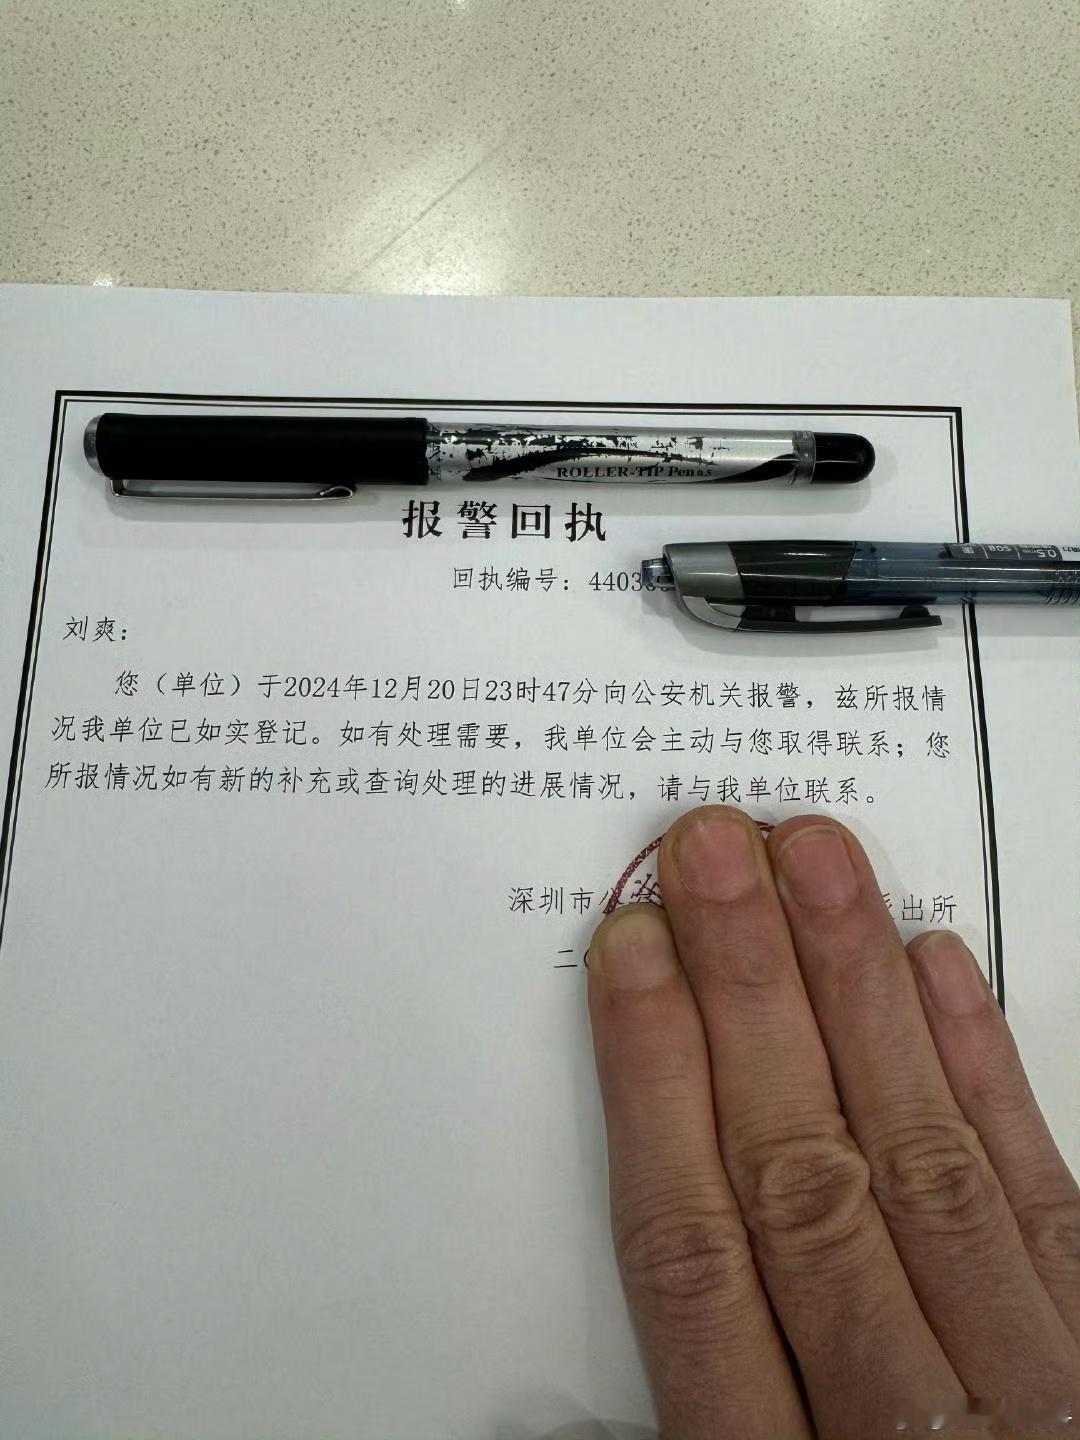 ROLLER-TIP Pen 0.5
报警回执
回执编号：4403
0.5mm
刘爽：
您（单位）于2024年12月20日23时47分向公安机关报警，兹所报情
况我单位已如实登记。如有处理需要，我单位会主动与您取得联系；您
所报情况如有新的补充或查询处理的进展情况，请与我单位联系。
深圳市公 派出所
二〇